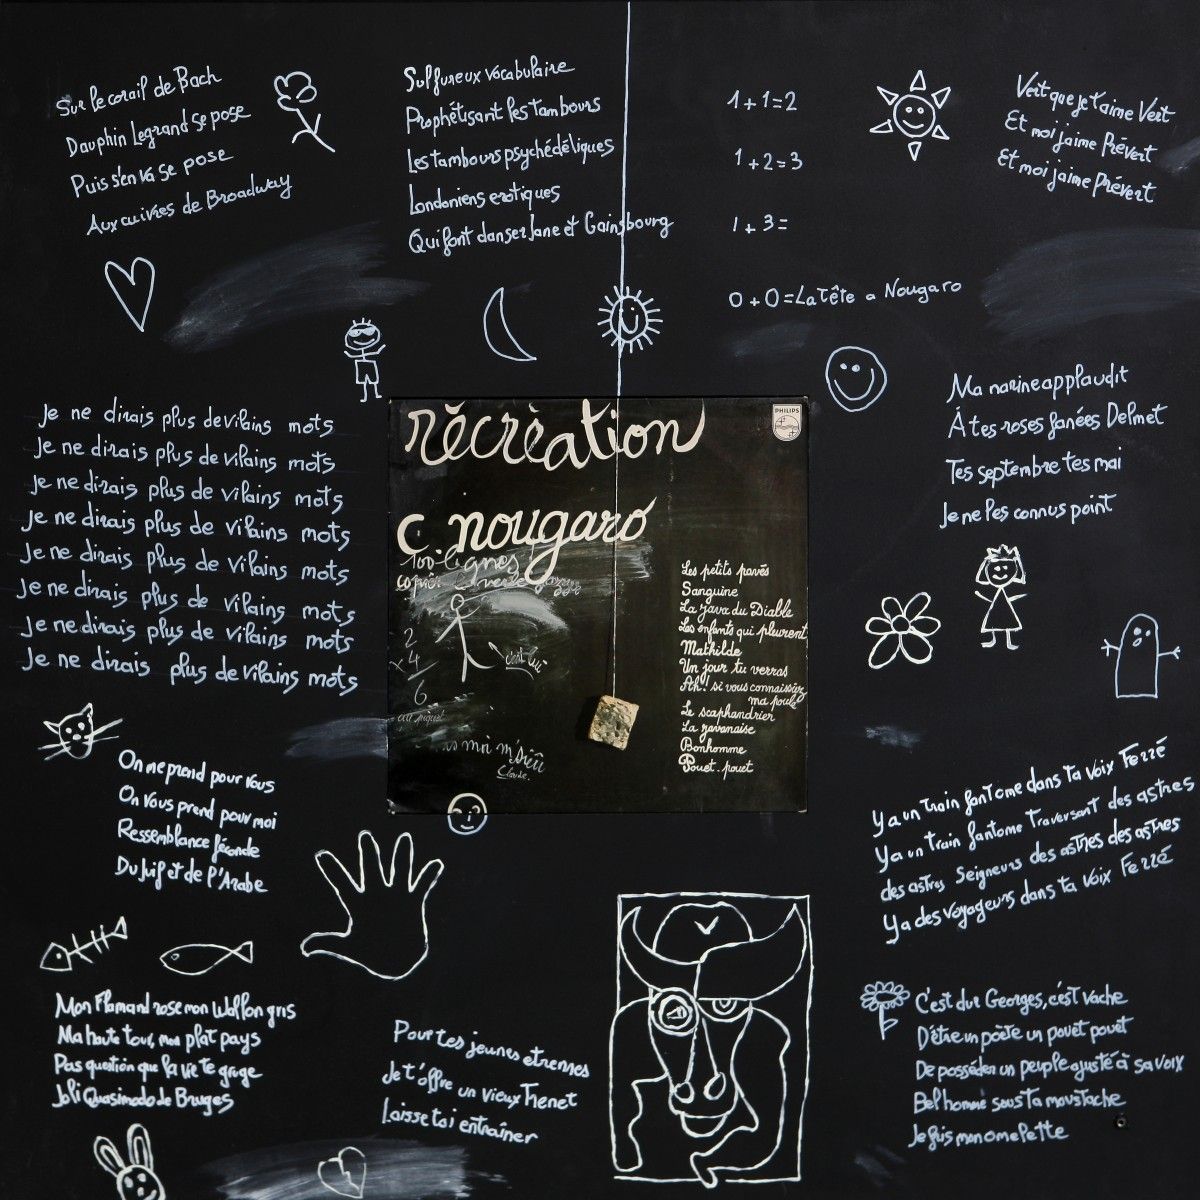 Sur le corail de Bach
Dauphin Legrand se pose
Puis s'en va se pose
Aux cuivres de Broadway
Sulfureux vocabulaire
Prophétisant les tambours
Les tambours psychédéliques
Londoniens erotiques
Qui font danser Jane et Gainsbourg
1+1=2
1+2=3
1+3=
0+0=La Tête a Nougaro
Vert que je t'aime Vert
Et moi j'aime Prévert
Et moi j'aime Prévert
Je ne dirais plus de vilains mots
Je ne dirais plus de vilains mots
Je ne dirais plus de vilains mots
Je ne dirais plus de vilains mots
Je ne dirais plus de vilains mots
Je ne dirais plus de vilains mots
Je ne dirais plus de vilains mots
Je ne dirais plus de vilains mots
récréation
PHILIPS
c. nougaro
100 lignes
copier le verbe
2
x 4
6
au piquet
c'est lui
pas moi m'sieu
Claude.
Les petits pavés
Sanguine
La java du Diable
Les enfants qui pleurent
Mathilde
Un jour tu verras
Ah! si vous connaissiez
ma poule
Le scaphandrier
La javanaise
Bonhomme
Pouet-pouet
Ma narine applaudit
À tes roses fanées Delmet
Tes septembre tes mai
Je ne les connus point
On me prend pour vous
On vous prend pour moi
Ressemblance féconde
Du Juif et de l'Arabe
Y a un train fantome dans ta voix Ferré
Y a un train fantome Traversant des astres
des astres Seigneurs des astres des astres
Y a des voyageurs dans ta voix Ferré
Mon Flamand rose mon Wallon gris
Ma haute tour, mon plat pays
Pas question que la vie te gruge
Joli Quasimodo de Bruges
Pour tes jeunes etrennes
Je t'offre un vieux Trenet
Laisse toi entraîner
C'est dur Georges, c'est vache
D'être un poète un pouët pouët
De posséder un peuple ajusté à sa voix
Bel homme sous ta moustache
Je fuis mon omelette